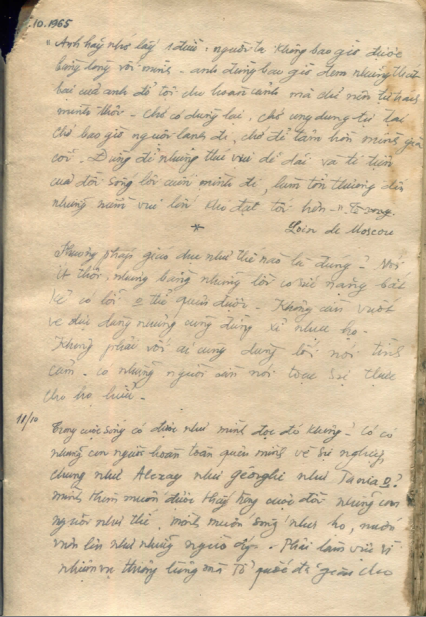 .10.1965
"Anh hãy nhớ lấy 1 điều: người ta không bao giờ được
bằng lòng với mình - anh đừng bao giờ đem những thất
bại của anh để tội cho hoàn cảnh mà chỉ nên tự trách
mình thôi - chớ có dừng lại, chớ ung dung tự tại
chớ bao giờ nguội lạnh đi, chớ để tâm hồn mình già
cỗi. Đừng để những thú vui dễ dãi và ti tiện
của đời sống lôi cuốn mình đi, làm tổn thương đến
những niềm vui lớn khó đạt tới hơn -"
*
Loin de Moscou
Phương pháp giáo dục như thế nào là đúng? Nói
ít thôi, nhưng bằng những lời có sức nặng bất
kể có lỗi
ve dịu dàng nhưng cũng đừng xỉ nhục họ -
Không phải với ai cũng dùng lối nói tình
cảm - có những người cần nói toạc sự thực
cho họ hiểu -
11/10
Trong cuộc sống có được như mình đọc đó không? Có có
những con người hoàn toàn quên mình vì sự nghiệp
chung như Alexay như géorghi như Tania B?
mình thèm muốn được thấy trong cuộc đời những con
người như thế, mình muốn sống như họ, muốn
vươn lên như những người ấy - Phải làm việc vì
nhiệm vụ thiêng liêng mà Tổ quốc đã giao cho